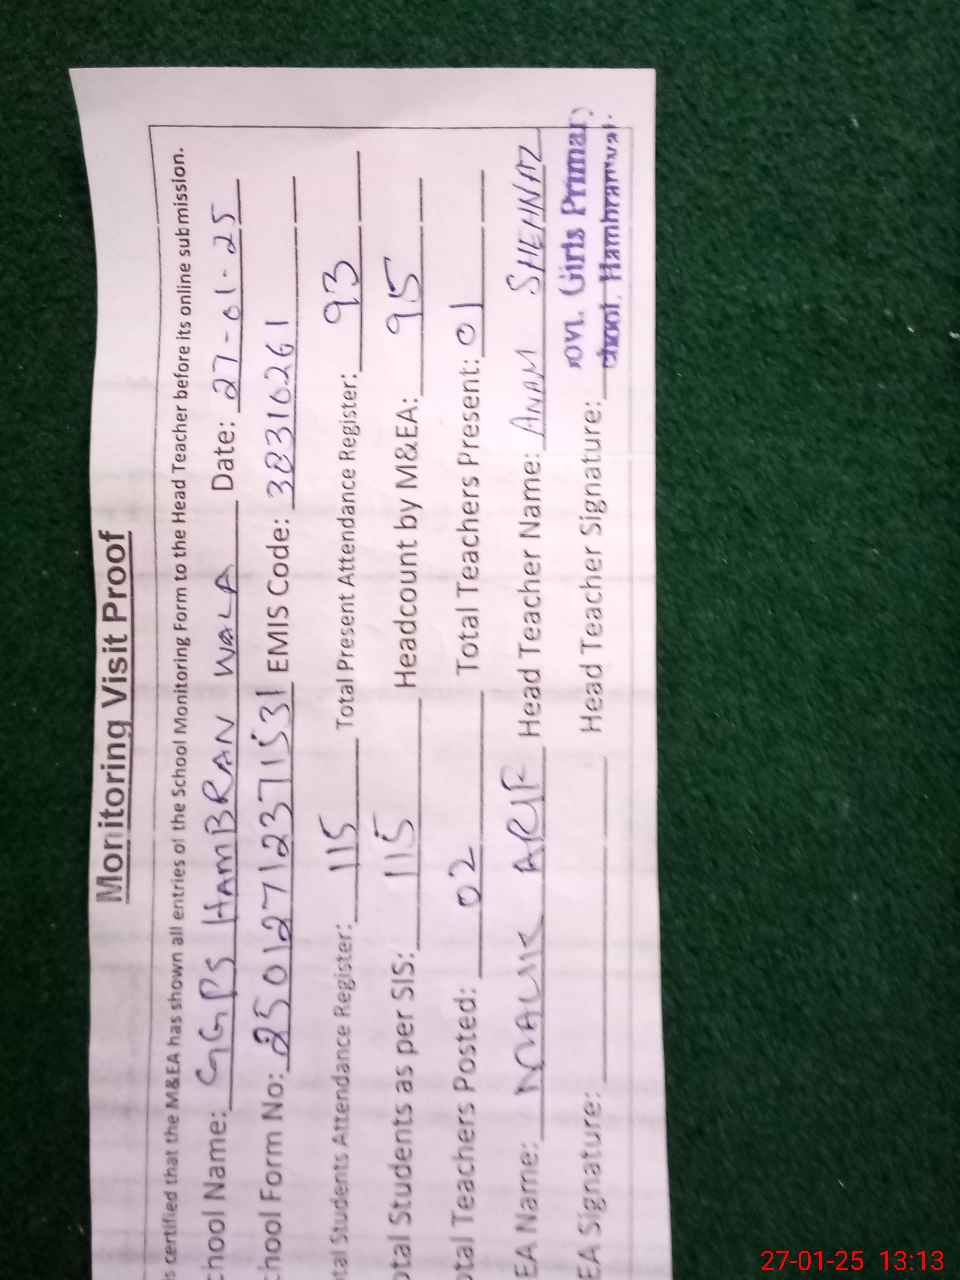 Monitoring Visit Proof
is certified that the M&EA has shown all entries of the School Monitoring Form to the Head Teacher before its online submission.
chool Name: GGPS HAMBRAN WALA Date: 27-01-25
chool Form No: 25012712371531 EMIS Code: 38310261
tal Students Attendance Register: 115 Total Present Attendance Register: 93
otal Students as per SIS: 115 Headcount by M&EA: 95
otal Teachers Posted: 02 Total Teachers Present: 01
EA Name: MALIK ARIF Head Teacher Name: ANAM SHEHNAZ
EA Signature: Head Teacher Signature:
ovt. Girls Primary
chool. Hambranwal
27-01-25 13:13